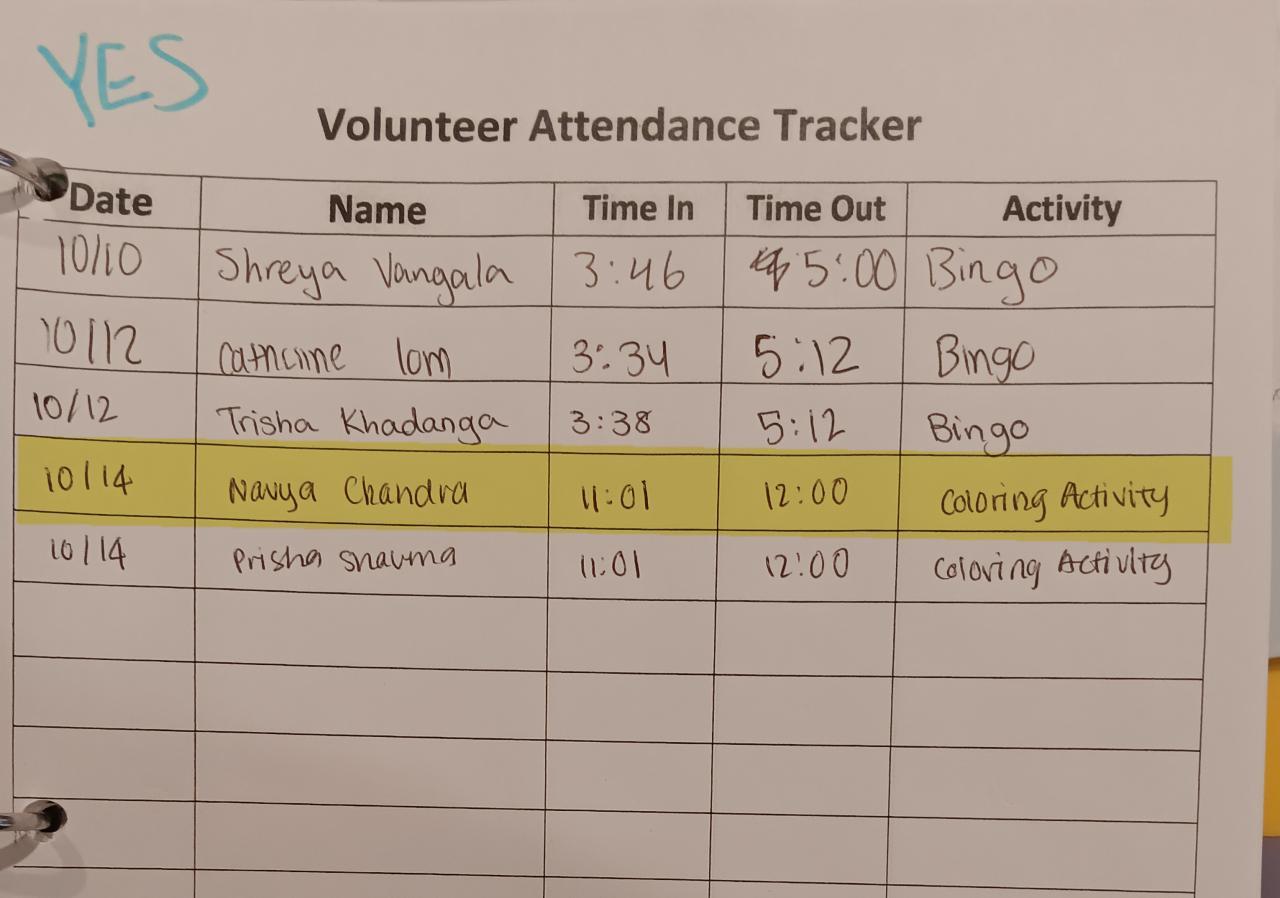 YES
Volunteer Attendance Tracker
Date Name Time In Time Out Activity
10/10 Shreya Vangala 3:46 5:00 Bingo
10/12 3:34 5:12 Bingo
10/12 Trisha Khadanga 3:38 5:12 Bingo
10/14 Navya Chandra 11:01 12:00 Coloring Activity
10/14 Prisha 11:01 12:00 Coloring Activity